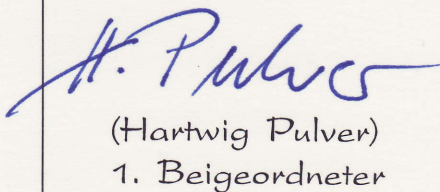 H. Pulver
(Hartwig Pulver)
1. Beigeordneter